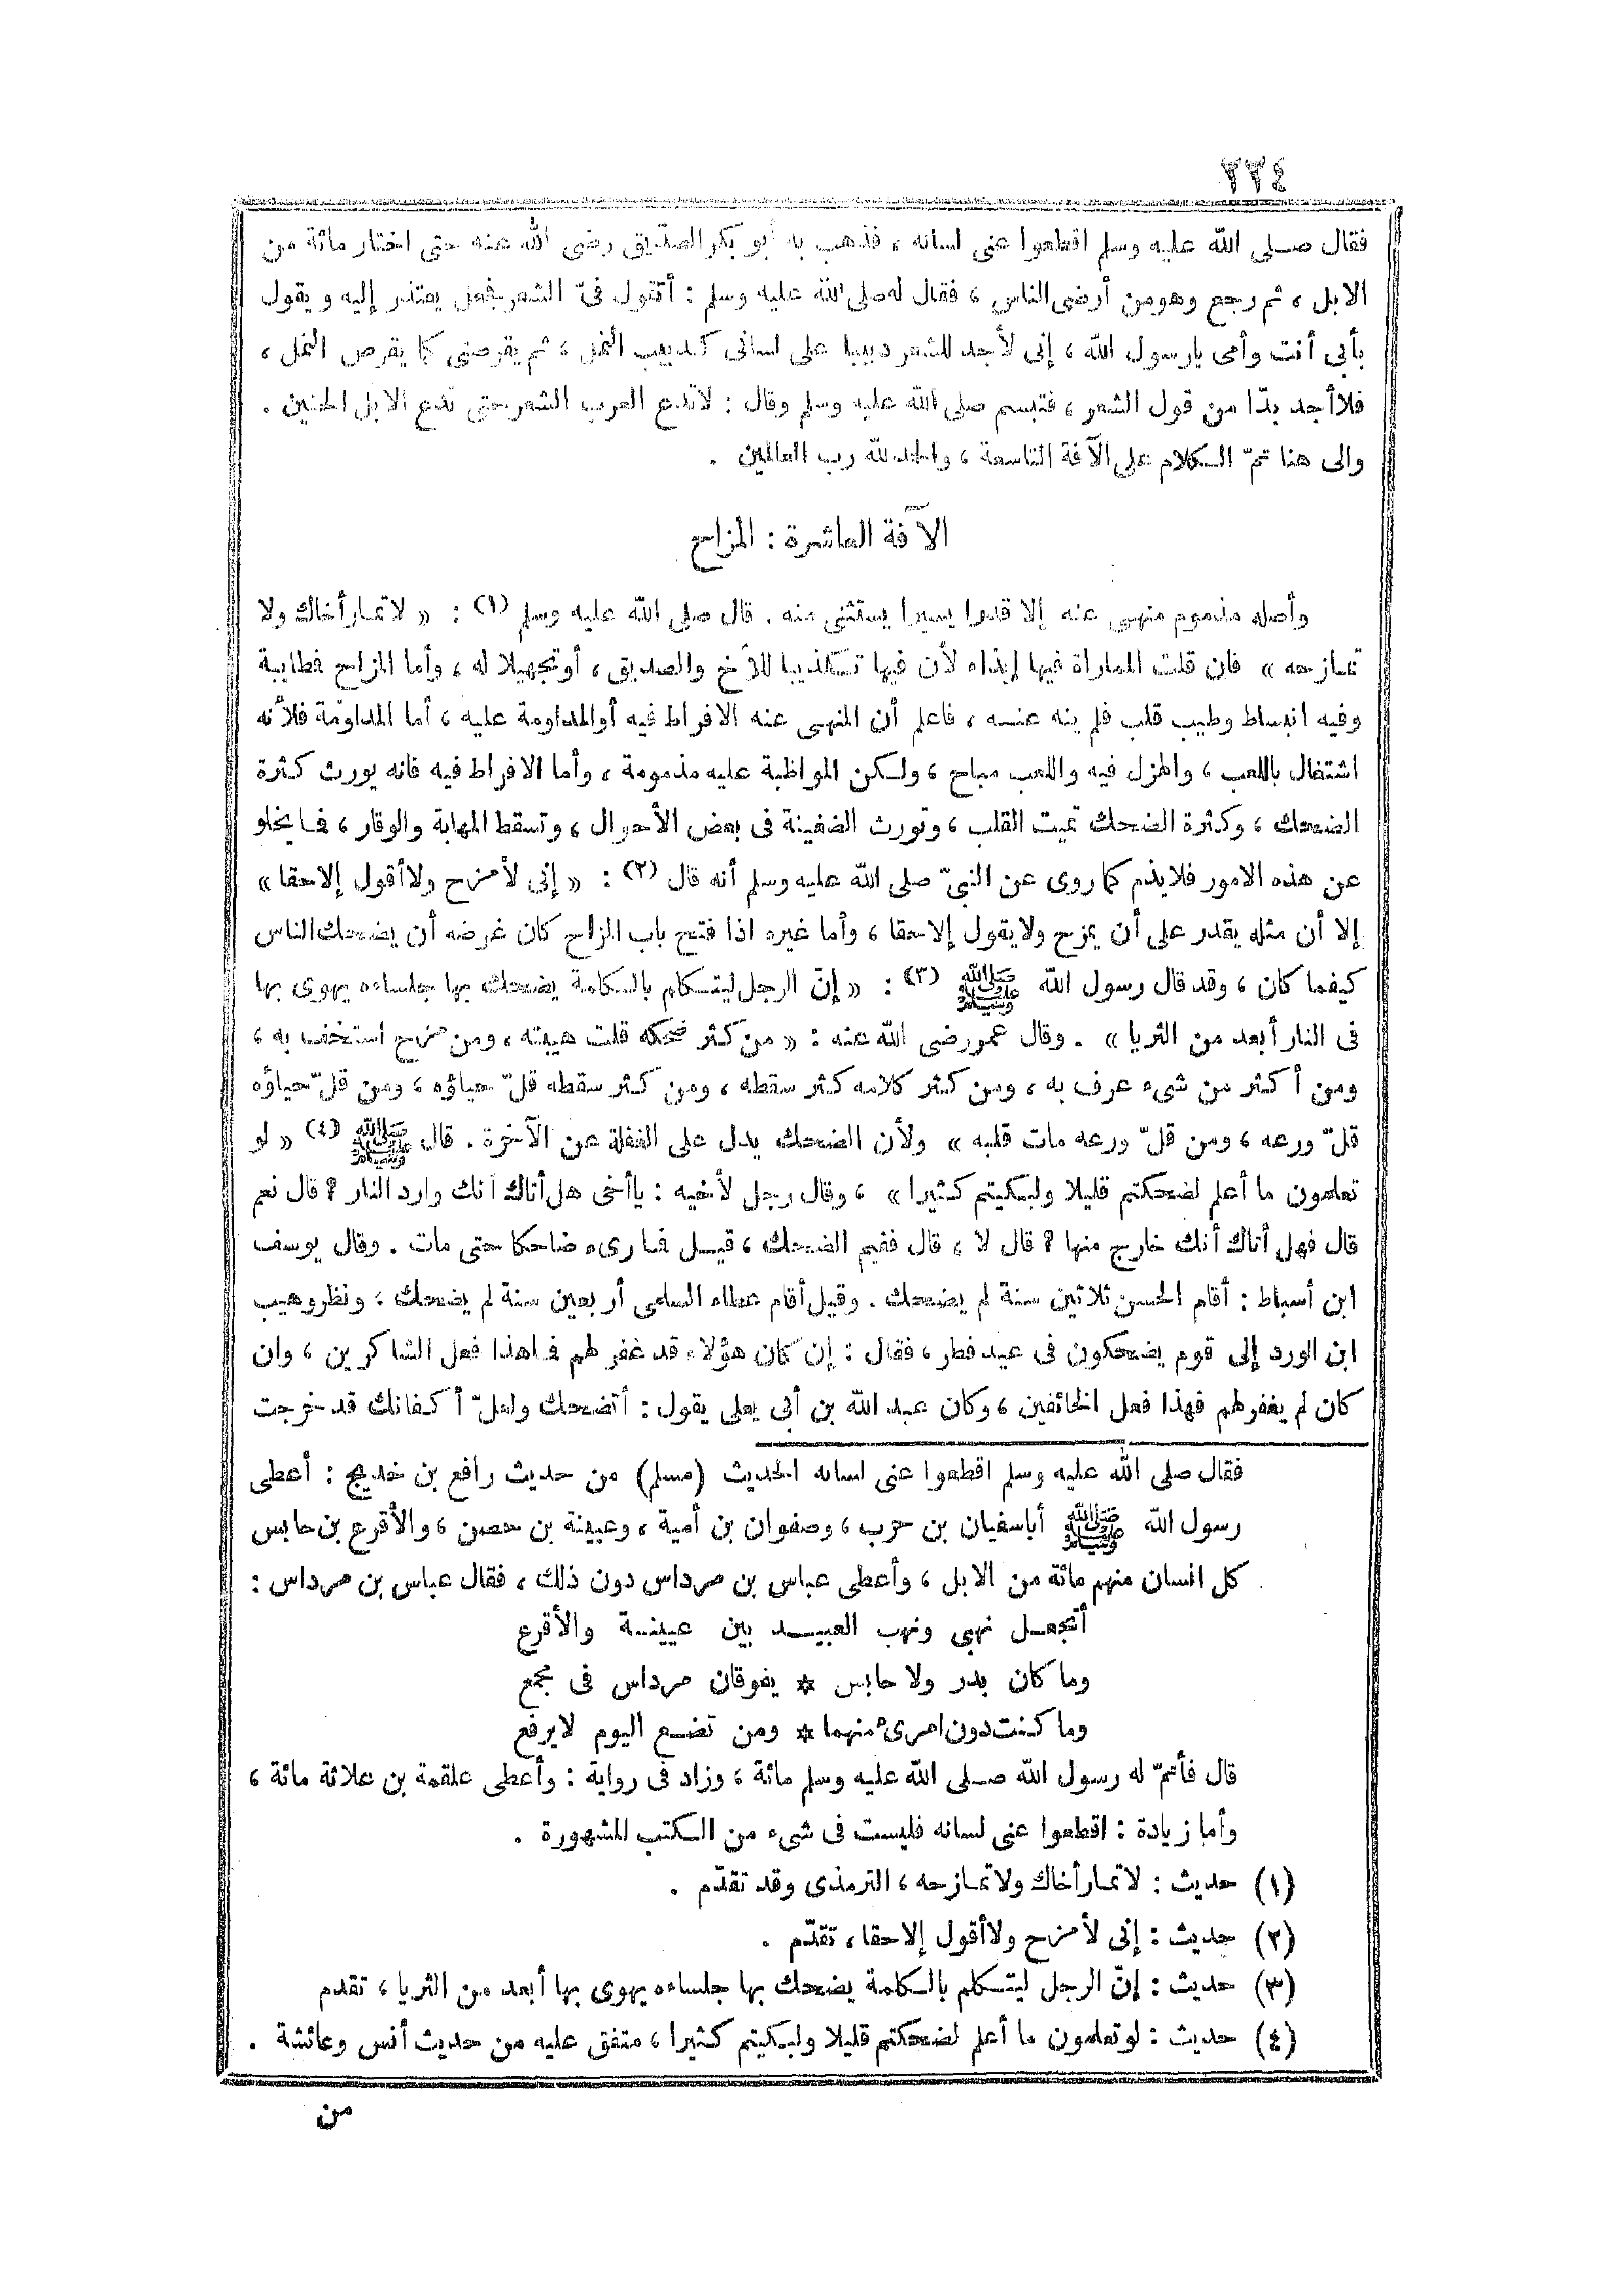 ٢٢٤
فقال صلى الله عليه وسلم اقطعوا عنى لسانه ، فذهب به أبو بكر الصدّيق رضى الله عنه حتى اختار مائة من
الابل ، ثم رجع وهو من أرضى الناس ، فقال له صلى الله عليه وسلم : أتقول فىّ الشعر فجعل يعتذر إليه ويقول
بأبى أنت وأمى يارسول الله ، إنى لأجد للشعر دبيبا على لسانى كدبيب النمل ، ثم يقرصنى كما يقرص النمل ،
فلا أجد بدّا من قول الشعر ، فتبسم صلى الله عليه وسلم وقال : لاتدع العرب الشعر حتى تدع الابل الحنين .
والى هنا تمّ الكلام على الآفة التاسعة ، والحمد لله رب العالمين .
الآفة العاشرة : المزاح
وأصله مذموم منهى عنه إلا قدرا يسيرا يستثنى منه . قال صلى الله عليه وسلم (١) : « لاتمار أخاك ولا
تمازحه » فان قلت المماراة فيها إيذاء لأن فيها تكذيبا للأخ والصديق ، أوتجهيلا له ، وأما المزاح فطايبة
وفيه انبساط وطيب قلب فلم ينه عنه ، فاعلم أن المنهى عنه الافراط فيه أوالمداومة عليه ، أما المداومة فلأنه
اشتغال باللعب ، والهزل فيه واللعب مباح ، ولكن المواظبة عليه مذمومة ، وأما الافراط فيه فانه يورث كثرة
الضحك ، وكثرة الضحك تميت القلب ، وتورث الضغينة فى بعض الأحوال ، وتسقط المهابة والوقار ، فما يخلو
عن هذه الامور فلايذم كما روى عن النبىّ صلى الله عليه وسلم أنه قال (٢) : « إنى لأمزح ولاأقول إلاحقا »
إلا أن مثله يقدر على أن يمزح ولايقول إلاحقا ، وأما غيره اذا فتح باب المزاح كان غرضه أن يضحك الناس
كيفما كان ، وقد قال رسول الله ﷺ (٣) : « إنّ الرجل ليتكلم بالكلمة يضحك بها جلساءه يهوى بها
فى النار أبعد من الثريا » . وقال عمر رضى الله عنه : « من كثر ضحكه قلت هيبته ، ومن مزح استخف به ،
ومن أكثر من شىء عرف به ، ومن كثر كلامه كثر سقطه ، ومن كثر سقطه قلّ حياؤه ، ومن قلّ حياؤه
قلّ ورعه ، ومن قلّ ورعه مات قلبه » ولأن الضحك يدل على الغفلة عن الآخرة . قال ﷺ (٤) « لو
تعلمون ما أعلم لضحكتم قليلا ولبكيتم كثيرا » ، وقال رجل لأخيه : ياأخى هل أتاك أنك وارد النار ؟ قال نعم
قال فهل أتاك أنك خارج منها ؟ قال لا ، قال ففيم الضحك ، قيل فما رىء ضاحكا حتى مات . وقال يوسف
ابن أسباط : أقام الحسن ثلاثين سنة لم يضحك . وقيل أقام عطاء السلمى أربعين سنة لم يضحك ، ونظر وهيب
ابن الورد إلى قوم يضحكون فى عيد فطر ، فقال : إن كان هؤلاء قد غفر لهم فما هذا فعل الشاكرين ، وان
كان لم يغفر لهم فهذا فعل الخائفين ، وكان عبد الله بن أبى يعلى يقول : أتضحك ولعلّ أكفانك قد خرجت
فقال صلى الله عليه وسلم اقطعوا عنى لسانه الحديث (مسلم) من حديث رافع بن خديج : أعطى
رسول الله ﷺ أباسفيان بن حرب ، وصفوان بن أمية ، وعيينة بن حصن ، والأقرع بن حابس
كل انسان منهم مائة من الابل ، وأعطى عباس بن مرداس دون ذلك ، فقال عباس بن مرداس :
أتجعل نهبى ونهب العبيد بين عيينة والأقرع
وما كان بدر ولا حابس * يفوقان مرداس فى مجمع
وما كنت دون امرىء منهما * ومن تضع اليوم لايرفع
قال فأتمّ له رسول الله صلى الله عليه وسلم مائة ، وزاد فى رواية : وأعطى علقمة بن علاثة مائة ،
وأما زيادة : اقطعوا عنى لسانه فليست فى شىء من الكتب المشهورة .
(١) حديث : لاتمار أخاك ولاتمازحه ، الترمذى وقد تقدّم .
(٢) حديث : إنى لأمزح ولاأقول إلاحقا ، تقدّم .
(٣) حديث : إنّ الرجل ليتكلم بالكلمة يضحك بها جلساءه يهوى بها أبعد من الثريا ، تقدم
(٤) حديث : لوتعلمون ما أعلم لضحكتم قليلا ولبكيتم كثيرا ، متفق عليه من حديث أنس وعائشة .
من